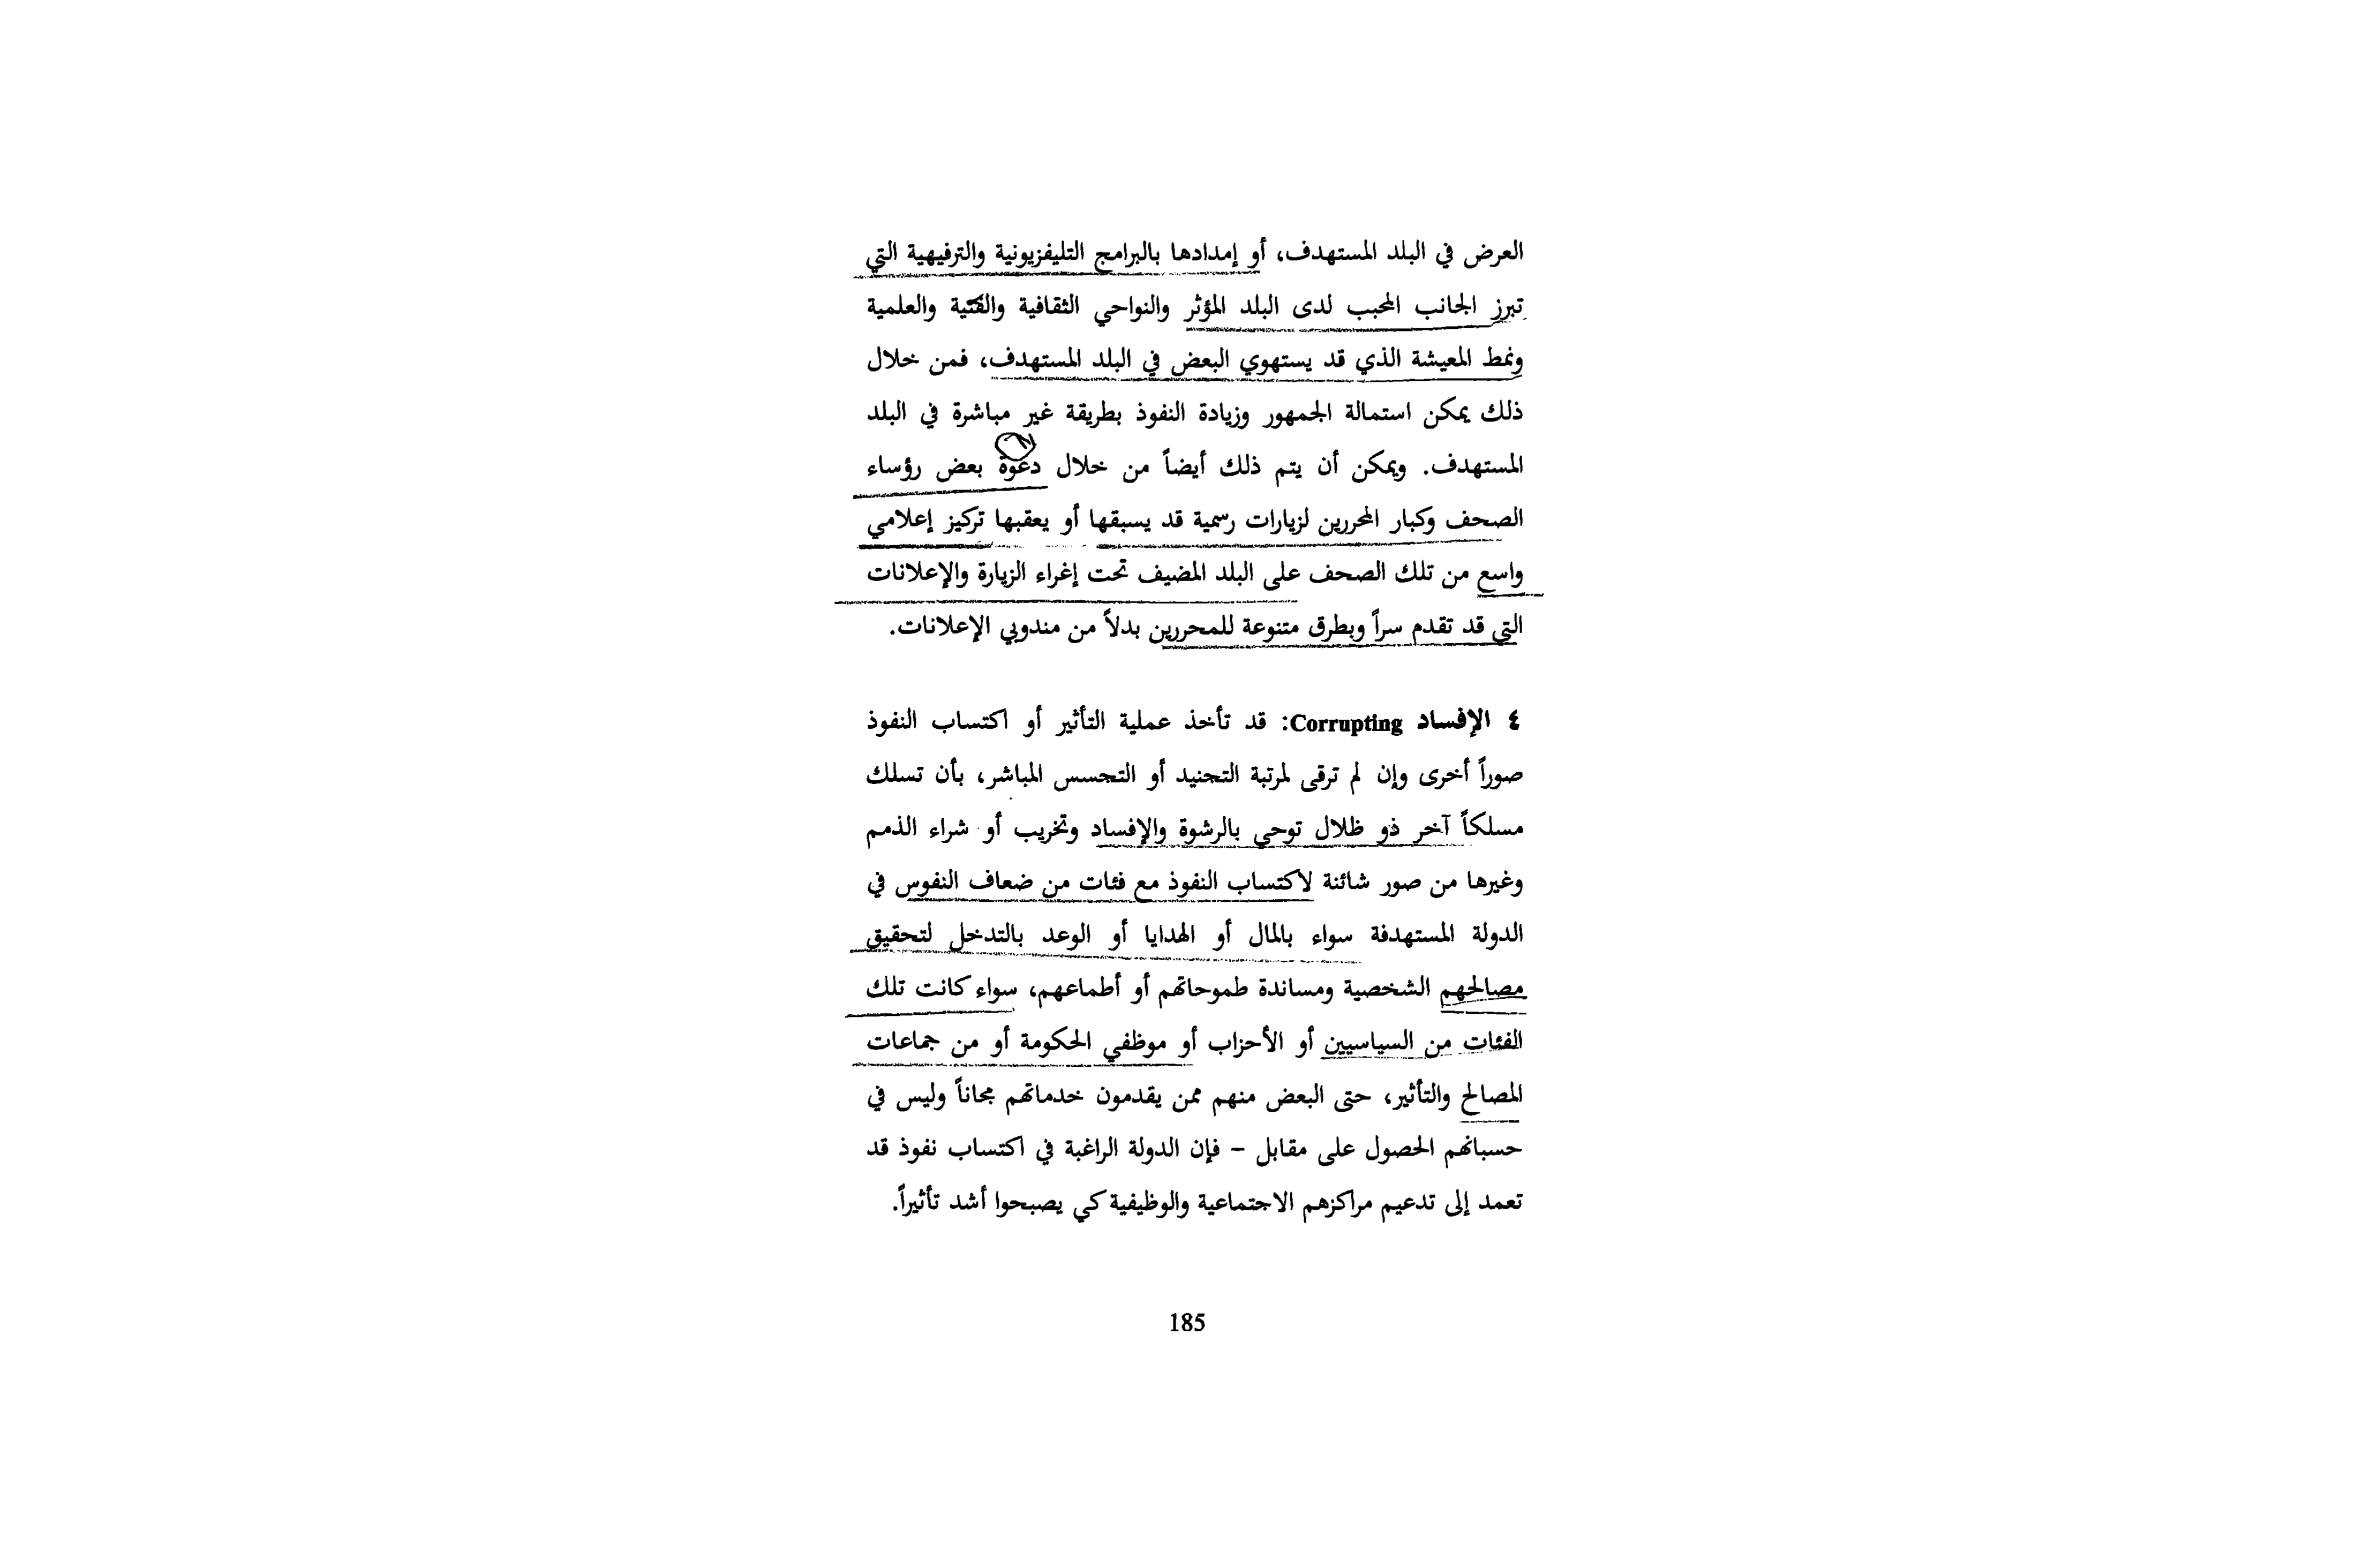 العرض في البلد المستهدف، أو إمدادها بالبرامج التليفزيونية والترفيهية التي
تبرز الجانب المحبب لدى البلد المؤثر والنواحي الثقافية والفنية والعلمية
ونمط المعيشة الذي قد يستهوي البعض في البلد المستهدف، فمن خلال
ذلك يمكن استمالة الجمهور وزيادة النفوذ بطريقة غير مباشرة في البلد
المستهدف. ويمكن أن يتم ذلك أيضاً من خلال دعوة بعض رؤساء
الصحف وكبار المحررين لزيارات رسمية قد يسبقها أو يعقبها تركيز إعلامي
واسع من تلك الصحف على البلد المضيف تحت إغراء الزيارة والإعلانات
التي قد تقدم سراً وبطرق متنوعة للمحررين بدلاً من مندوبي الإعلانات.
٤ الإفساد Corrupting: قد تأخذ عملية التأثير أو اكتساب النفوذ
صوراً أخرى وإن لم ترقى لمرتبة التجنيد أو التجسس المباشر، بأن تسلك
مسلكاً آخر ذو ظلال توحي بالرشوة والإفساد وتخريب أو شراء الذمم
وغيرها من صور شائنة لاكتساب النفوذ مع فئات من ضعاف النفوس في
الدولة المستهدفة سواء بالمال أو الهدايا أو الوعد بالتدخل لتحقيق
مصالحهم الشخصية ومساندة طموحاتهم أو أطماعهم، سواء كانت تلك
الفئات من السياسيين أو الأحزاب أو موظفي الحكومة أو من جماعات
المصالح والتأثير، حتى البعض منهم ممن يقدمون خدماتهم مجاناً وليس في
حسبانهم الحصول على مقابل – فإن الدولة الراغبة في اكتساب نفوذ قد
تعمد إلى تدعيم مراكزهم الاجتماعية والوظيفية كي يصبحوا أشد تأثيراً.
185